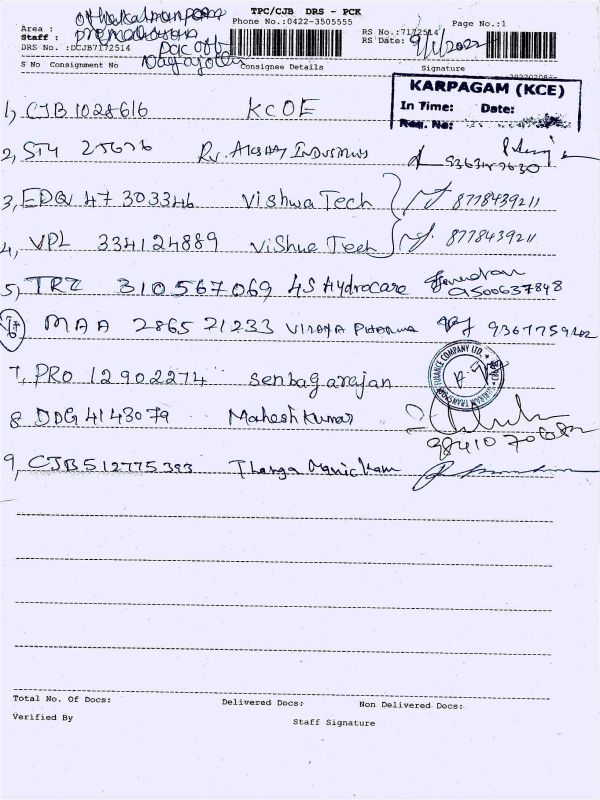 TPC/CJB DRS - PCK
Phone No.:0422-3505555
Page No.:1
Area : othakalmandapam
Staff :
RS No.:7172514
DRS No. :DCJB7172514
RS Date: 9/11/2022
S No Consignment No Consignee Details Signature
KARPAGAM (KCE)
In Time: Date:
Reg. No:
1, CJB 1028616 KCOE
2, STY 25676
3, EDQ 47 303346 Vishwa Tech 8778439211
4, VPL 334124889 Vishwa Tech 8778439211
5) TRZ 310567069 4S Hydrocare 9500637848
6 MAA 286521233 VIJAYA PHARMA
7, PRO 12902274 Senbagarajan
8 DDG 4143079 Mahesh Kumar
9, CJB512775393 Thanga Manickam
Total No. Of Docs: Delivered Docs: Non Delivered Docs:
Verified By Staff Signature